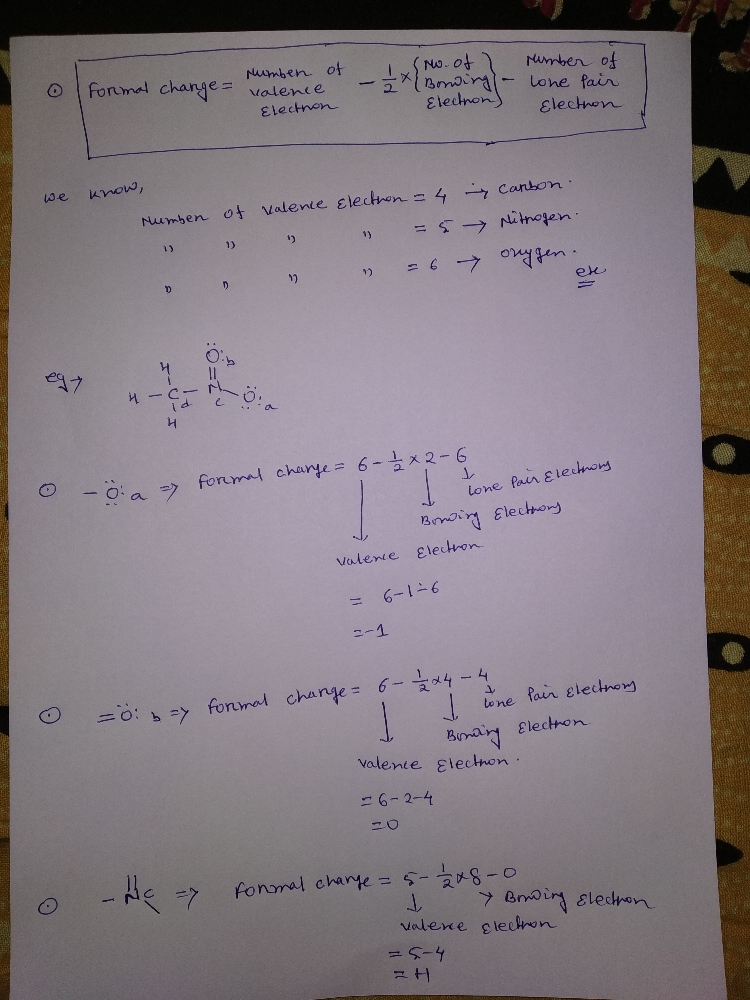 Formal change = Number of valence Electron - 1/2 × {No. of Bonding Electron} - Number of Lone Pair Electron
we know,
Number of valence Electron = 4 → Carbon.
" " " " = 5 → Nitrogen.
" " " " = 6 → oxygen.
eg → H - C - N - Ö: a
H H d c Ö: b
- Ö: a ⇒ Formal change = 6 - 1/2 × 2 - 6
Lone Pair Electrons
Bonding Electrons
Valence Electron
= 6-1-6
= -1
= Ö: b ⇒ Formal change = 6 - 1/2 × 4 - 4
Lone Pair Electrons
Bonding Electron
Valence Electron.
= 6-2-4
= 0
- N c ⇒ Formal change = 5 - 1/2 × 8 - 0
Bonding Electron
Valence Electron
= 5-4
= +1